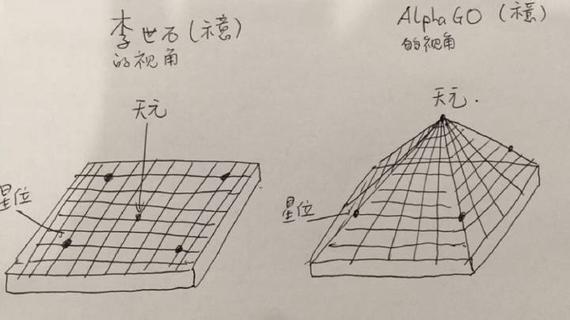 李世石(示意)
的视角
天元
星位
AlphaGO (示意)
的视角
天元.
星位